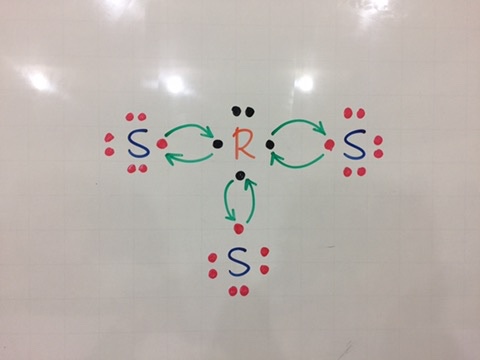 S R S
S